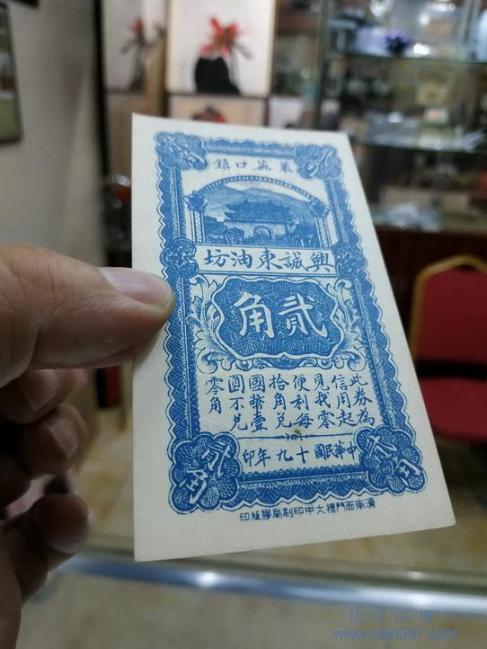 萊蕪口鎮
興誠東油坊
貳角
此券為
信用起
見找零
便利每
拾角兌
國幣壹
圓不兌
零角
中華民國十九年印
貳角
貳角
濟南西門裡大中印刷局膠版印